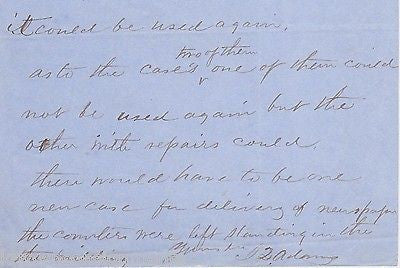 it could be used again.
two of them
as to the cases one of them could
not be used again but the
other with repairs could.
there would have to be one
new case for delivery of newspaper
the counters were left standing in the
J Q Adams